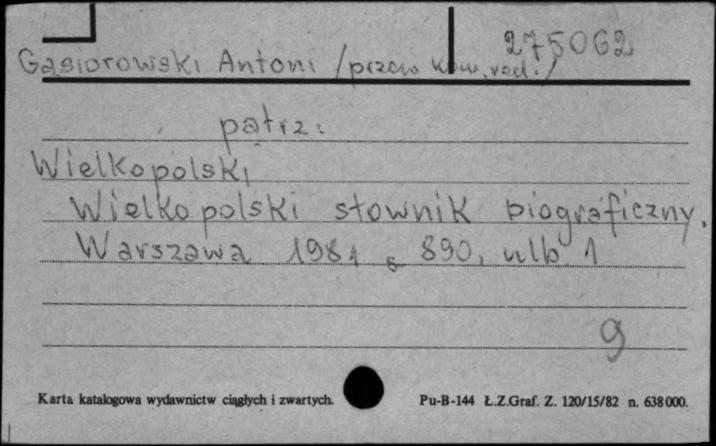 275062
Gąsiorowski Antoni /przew. kom. red./
patrz:
Wielkopolski
Wielkopolski słownik biograficzny.
Warszawa 1981 s 890, nlb 1
g
Karta katalogowa wydawnictw ciągłych i zwartych.
Pu-B-144 Ł.Z.Graf. Z. 120/15/82 n. 638000.